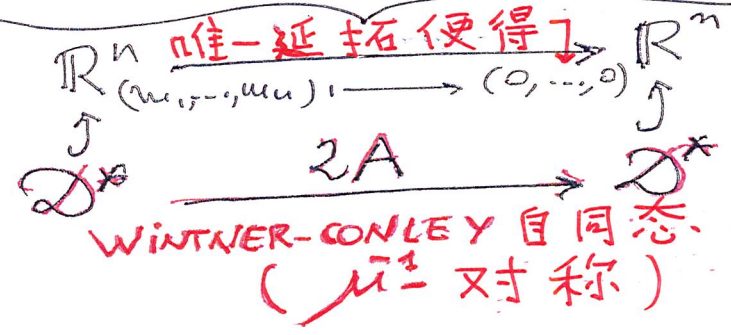 ℝⁿ 唯一延拓便得 ℝⁿ
(m₁,...,mₙ) ⟼ (0,...,0)
𝒟* 2A 𝒟*
WINTNER-CONLEY 自同态
(μ⁻¹ 对称)